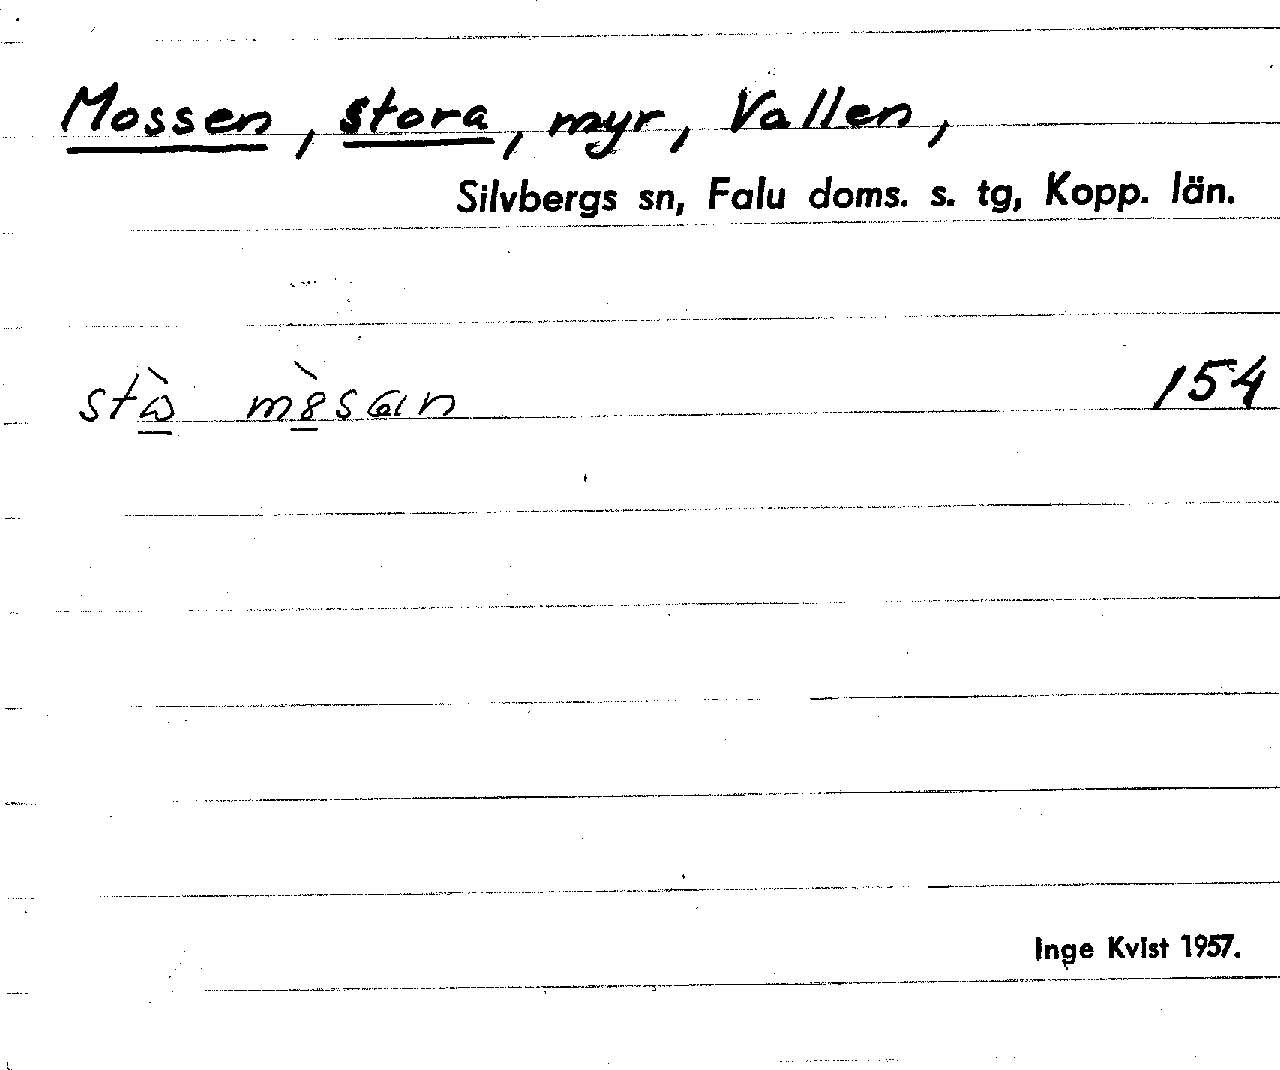 Mossen, stora, myr, Vallen,
Silvbergs sn, Falu doms. s. tg, Kopp. län.
154
Inge Kvist 1957.